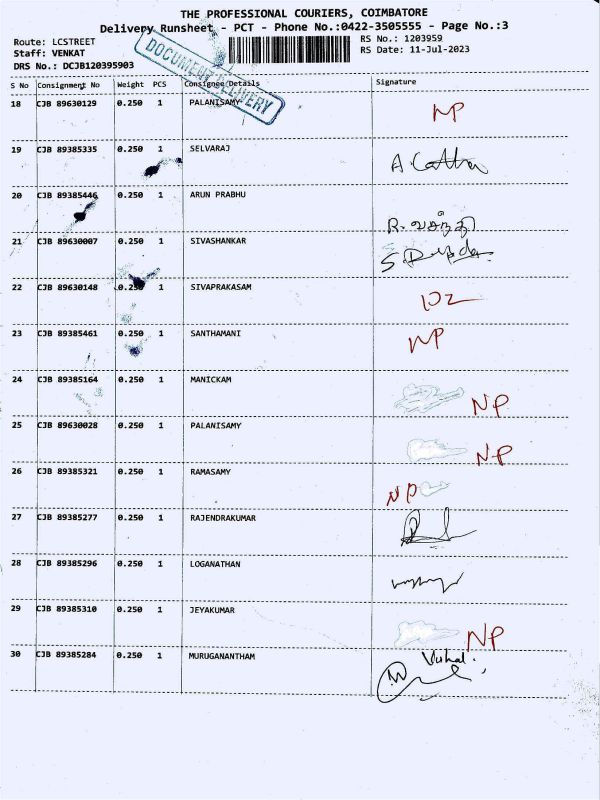 THE PROFESSIONAL COURIERS, COIMBATORE
Delivery Runsheet - PCT - Phone No.:0422-3505555 - Page No.:3
Route: LCSTREET
RS No.: 1203959
Staff: VENKAT
RS Date: 11-Jul-2023
DRS No.: DCJB120395903
DOCUMENT DELIVERY
S No Consignment No Weight PCS Consignee Details Signature
18 CJB 89630129 0.250 1 PALANISAMY NP
19 CJB 89385335 0.250 1 SELVARAJ
20 CJB 89385446 0.250 1 ARUN PRABHU R. வசந்தி
21 CJB 89630007 0.250 1 SIVASHANKAR
22 CJB 89630148 0.250 1 SIVAPRAKASAM
23 CJB 89385461 0.250 1 SANTHAMANI NP
24 CJB 89385164 0.250 1 MANICKAM NP
25 CJB 89630028 0.250 1 PALANISAMY NP
26 CJB 89385321 0.250 1 RAMASAMY NP
27 CJB 89385277 0.250 1 RAJENDRAKUMAR
28 CJB 89385296 0.250 1 LOGANATHAN
29 CJB 89385310 0.250 1 JEYAKUMAR NP
30 CJB 89385284 0.250 1 MURUGANANTHAM